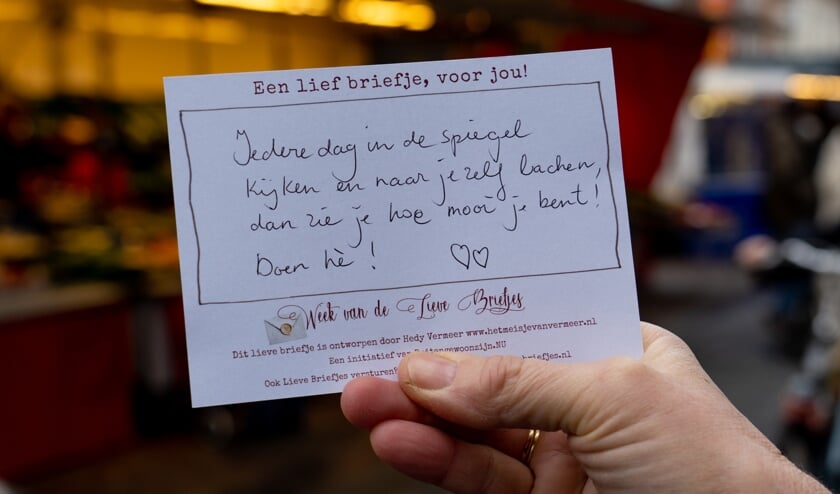 Een lief briefje, voor jou!
Iedere dag in de spiegel
kijken en naar jezelf lachen,
dan zie je hoe mooi je bent!
Doen hè!
Week van de Lieve Briefjes
Dit lieve briefje is ontworpen door Hedy Vermeer www.hetmeisjevanvermeer.nl
Een initiatief van Buitengewoonzijn.NU
Ook Lieve Briefjes versturen? briefjes.nl